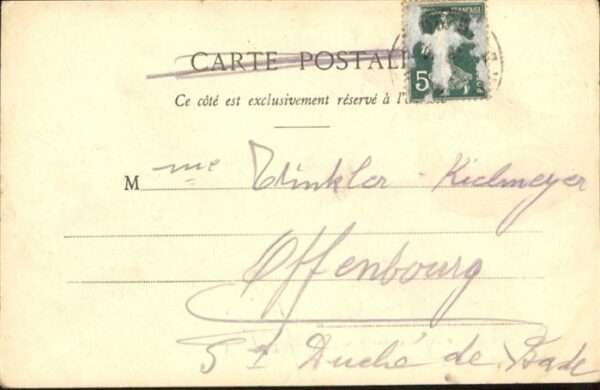 CARTE POSTALE
Ce côté est exclusivement réservé à l'
M me Winkler-Kielmeyer
Offenbourg
Gd Duché de Bade
5